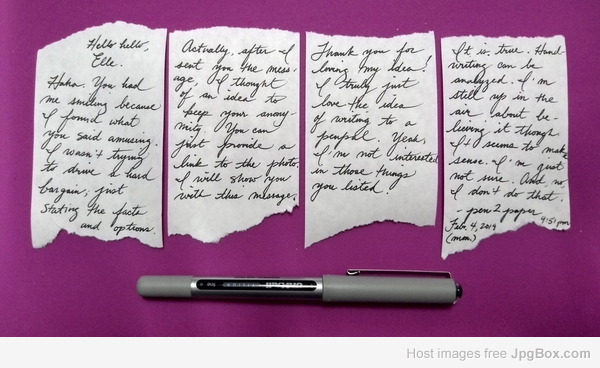 Hello hello,
Elle.
Haha. You had
me smiling because
I found what
you said amusing.
I wasn't trying
to drive a hard
bargain; just
stating the facts
and options.
Actually, after I
sent you the mess-
age, I thought
of an idea to
keep your anony-
mity. You can
just provide a
link to the photo.
I will show you
with this message.
Thank you for
loving my idea!
I truly just
love the idea
of writing to a
penpal. Yeah,
I'm not interested
in those things
you listed.
It is true. Hand-
writing can be
analyzed. I'm
still up in the
air about be-
lieving it though
It seems to make
sense. I'm just
not sure. And no,
I don't do that.
- pen2paper
Feb. 4, 2019 9:51 pm
(mon.)
uni-ball
Host images free JpgBox.com